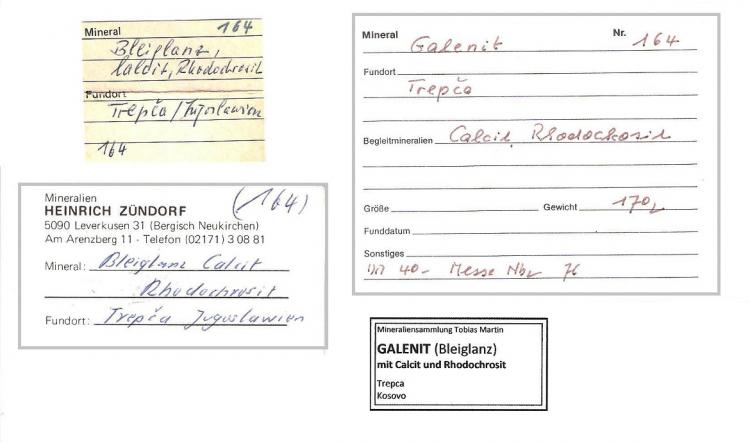 Mineral 164
Bleiglanz,
Calcit, Rhodochrosit
Fundort
Trepča / Jugoslawien
164
Mineral Galenit Nr. 164
Fundort
Trepča
Begleitmineralien Calcit, Rhodochrosit
Größe Gewicht 170
Funddatum
Sonstiges
DM 40- Messe Nbg 76
Mineralien (164)
HEINRICH ZÜNDORF
5090 Leverkusen 31 (Bergisch Neukirchen)
Am Arenzberg 11 - Telefon (02171) 3 08 81
Mineral: Bleiglanz Calcit
Rhodochrosit
Fundort: Trepča Jugoslawien
Mineraliensammlung Tobias Martin
GALENIT (Bleiglanz)
mit Calcit und Rhodochrosit
Trepca
Kosovo